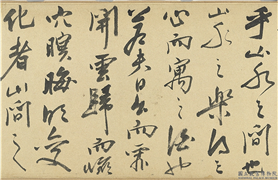 乎山水之間也
山水之樂得之
心而寓之酒也
若夫日出而霏
開雲歸而巖
穴暝晦明變
化者山間之